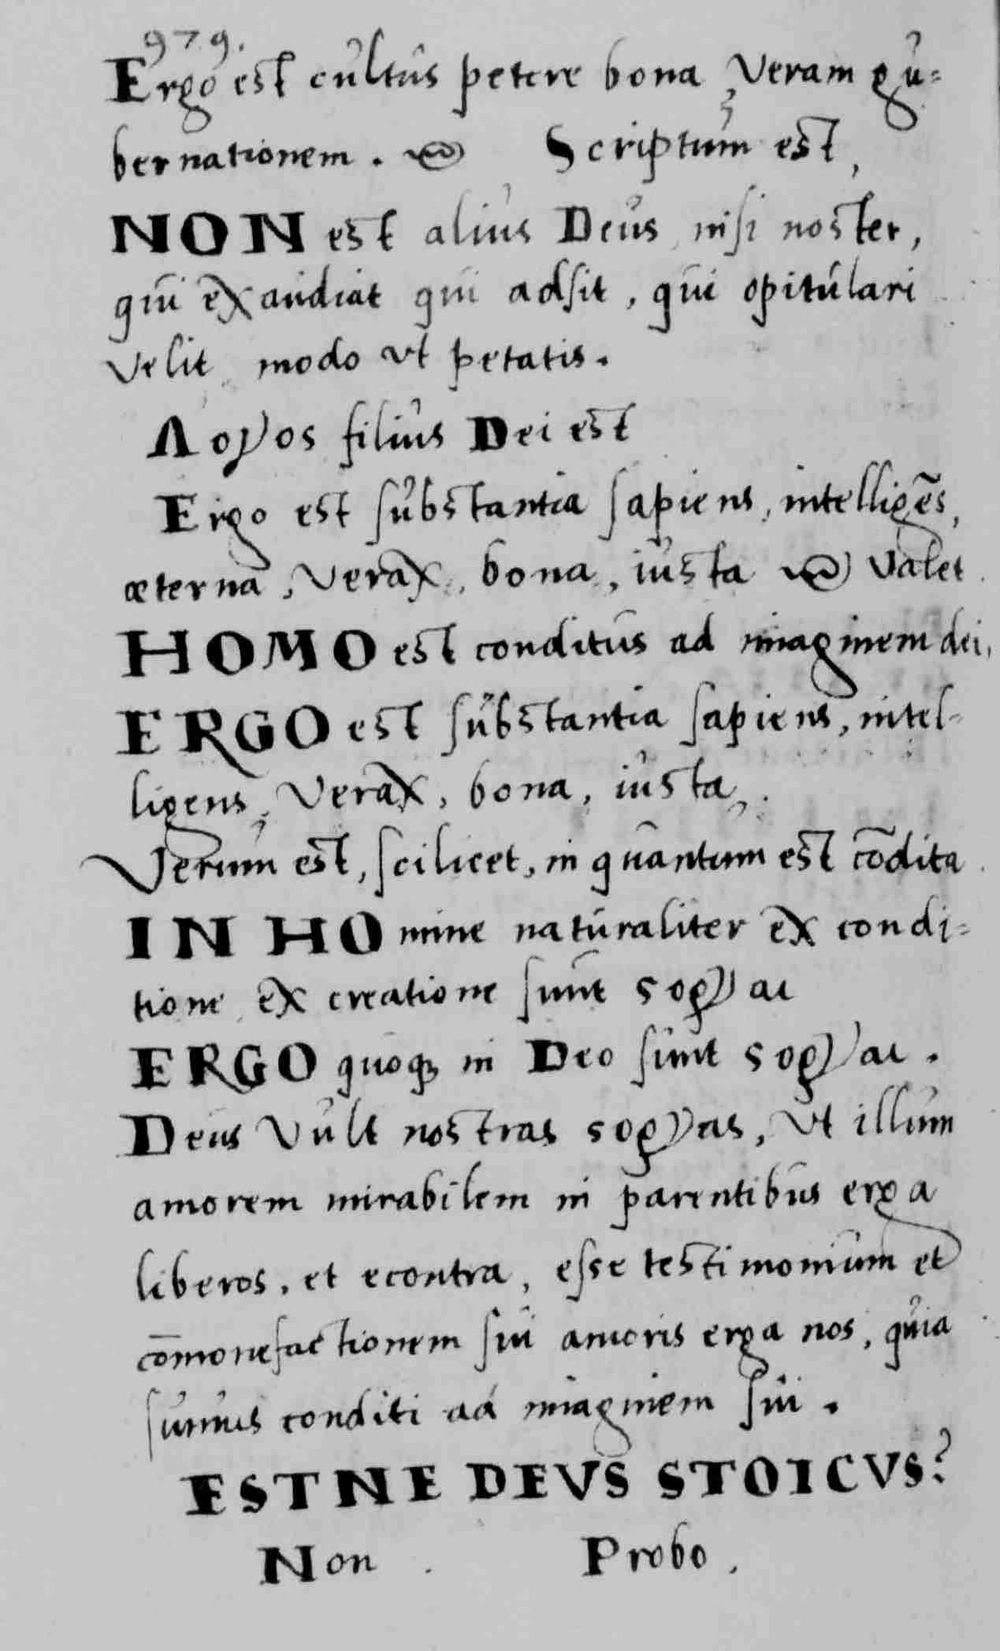 979.
Ergo est cultus petere bona, veram gu-
bernationem. Scriptum est,
NON est alius Deus nisi noster,
qui exaudiat qui adsit, qui opitulari
velit modo vt petatis.
Λογος filius Dei est
Ergo est substantia sapiens, intelligēs,
æterna, verax, bona, iusta valet
HOMO est conditus ad imaginem dei,
ERGO est substantia sapiens, intel-
ligens, verax, bona, iusta,
Verum est, scilicet, in quantum est cōdita
IN HOmine naturaliter ex condi-
tione ex creatione sunt ςοργαι
ERGO quoqꝫ in Deo sunt ςοργαι.
Deus vult nostras ςοργας, vt illum
amorem mirabilem in parentibus erga
liberos, et econtra, esse testimonium et
cōmonefactionem sui amoris erga nos, quia
sumus conditi ad imaginem sui.
ESTNE DEVS STOICVS?
Non. Probo.